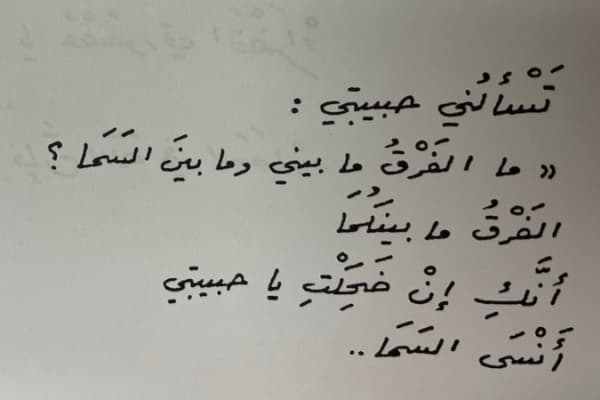 تَسْأَلُني حبيبتي :
« ما الفَرْقُ ما بيني وما بينَ السَمَا ؟
الفَرْقُ ما بينَكُمَا
أَنَّكِ إنْ ضَحِكْتِ يا حبيبتي
أَنْسَى السَمَا ..